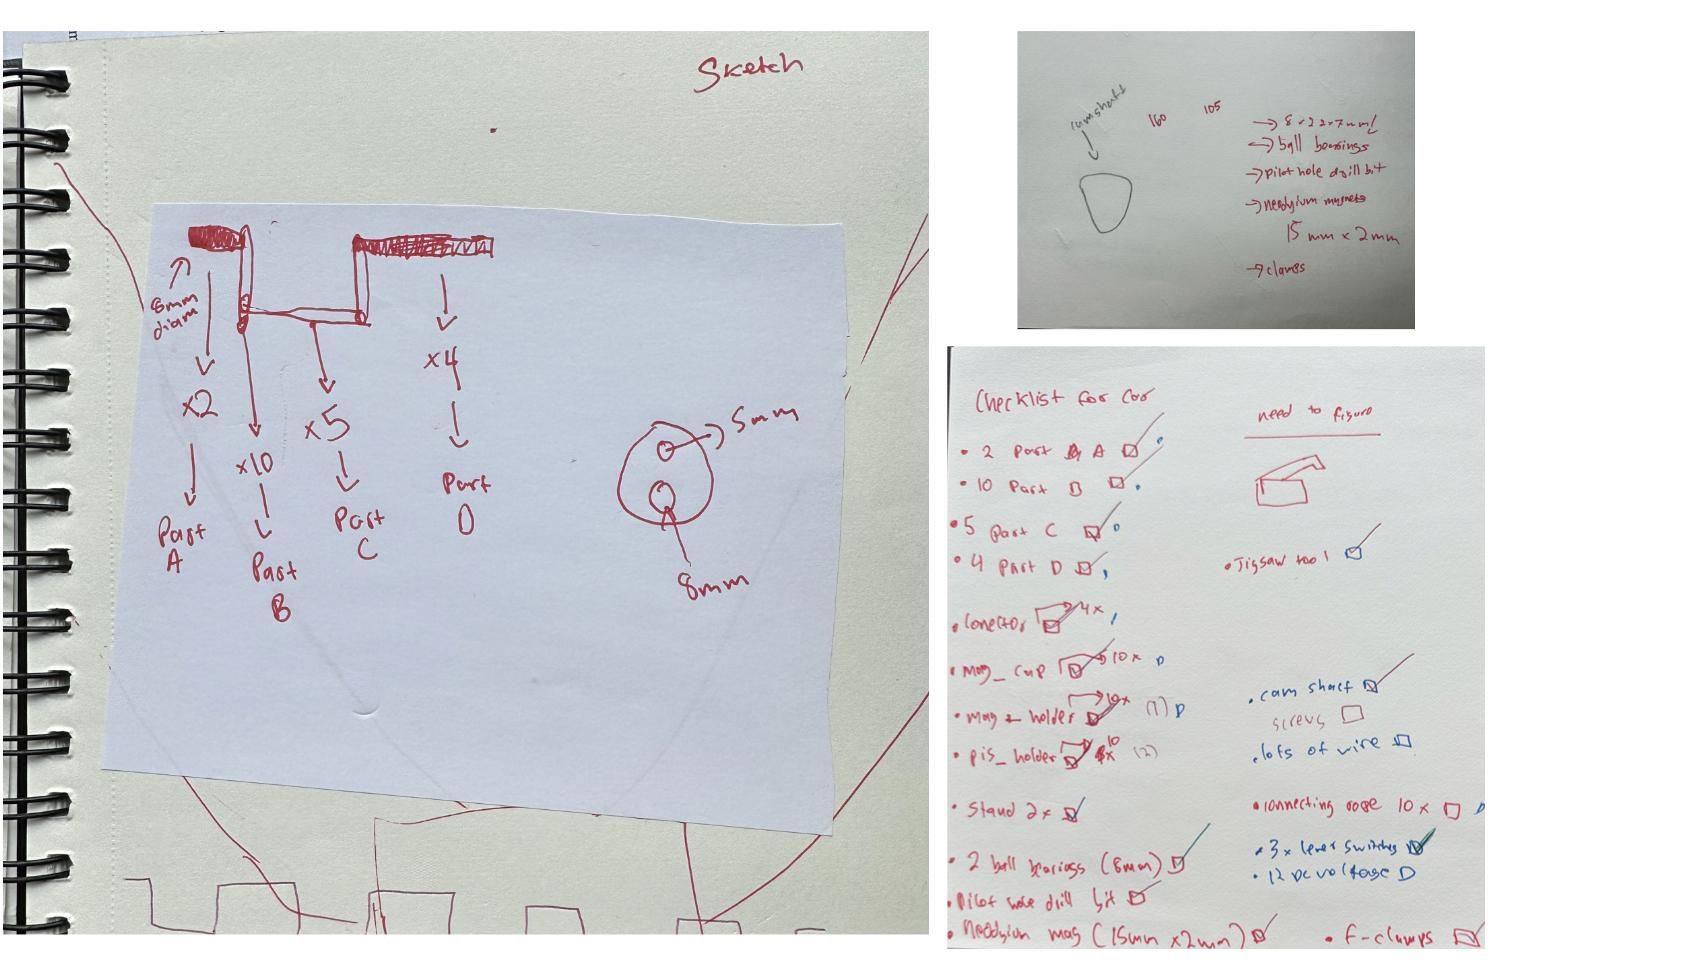 Sketch
8mm
diam
x2
x10
x5
x4
Part
A
Part
B
Part
C
Part
D
5mm
8mm
camshaft
160
105
→ 8x22x7mm
→ ball bearings
→ pilot hole drill bit
→ neodyium magnets
15mm x 2mm
→ clamps
Checklist for Car
• 2 Part A
• 10 Part B
• 5 Part C
• 4 Part D
• Conector 4x
• mag_ cap 10x
• mag - holder 10x (1)
• pis_ holder 10 x (2)
• Stand 2x
• 2 ball bearings (8mm)
• Pilot hole drill bit
• Neodyium mag (15mm x2mm)
need to figure
• Jigsaw tool
• cam shaft
screws
• lots of wire
• connecting 10x
• 3x lever switches
• 12 DC voltage
• F-clamps